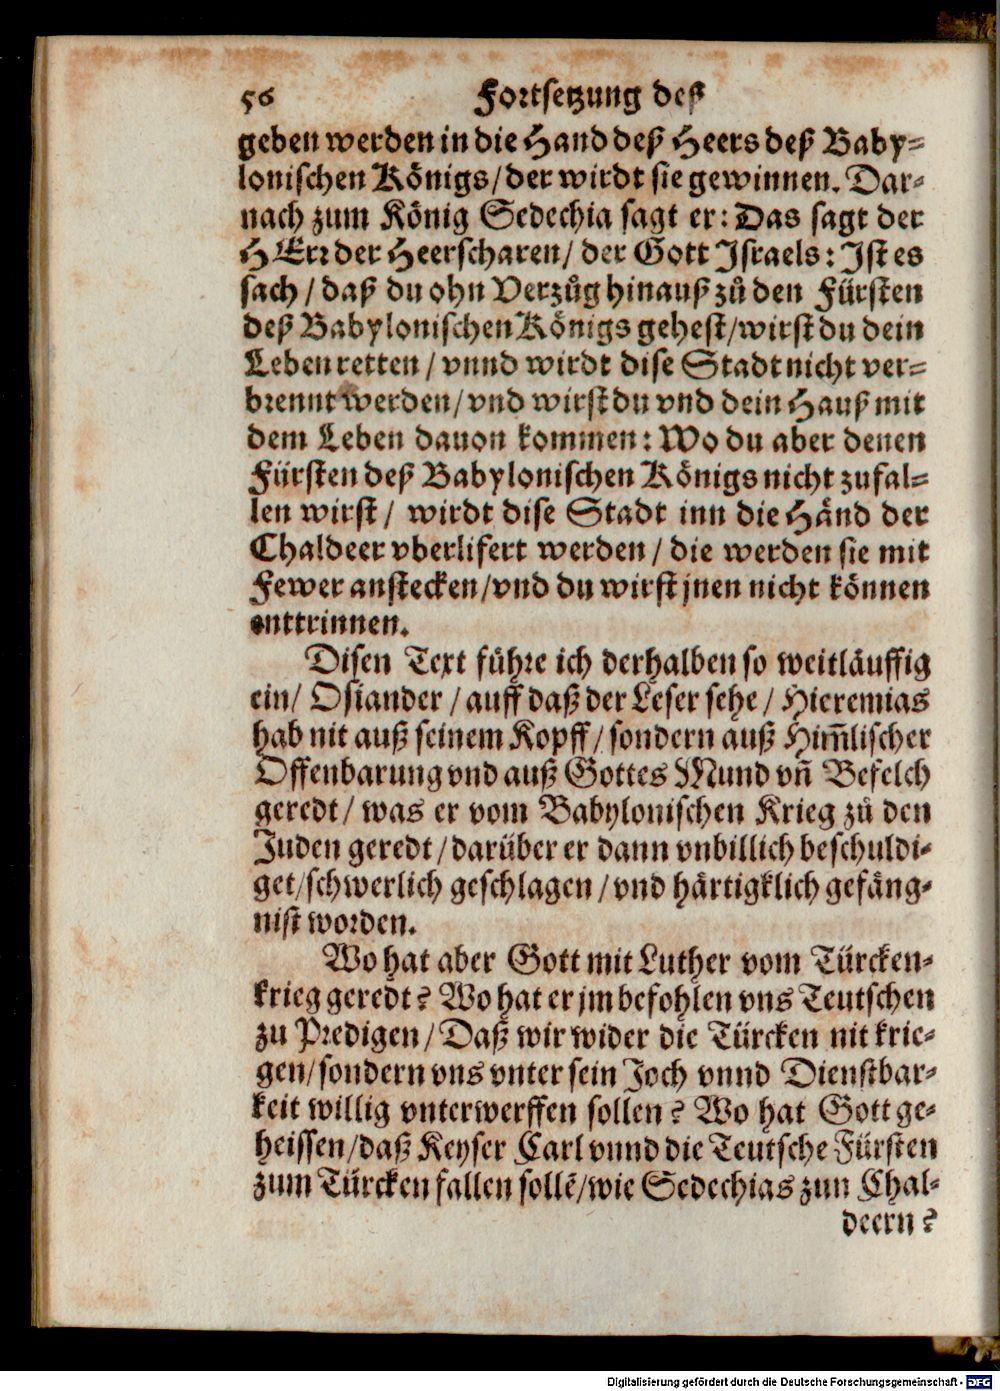 56 Fortsetzung deß
geben werden in die Hand deß Heers deß Baby-
lonischen Königs/der wirdt sie gewinnen. Dar-
nach zum König Sedechia sagt er: Das sagt der
HErr der Heerscharen/ der Gott Israels: Ist es
sach / daß du ohn Verzůg hinauß zů den Fürsten
deß Babylonischen Königs gehest/wirst du dein
Leben retten / vnnd wirdt dise Stadt nicht ver-
brennt werden/vnd wirst du vnd dein Hauß mit
dem Leben dauon kommen: Wo du aber denen
Fürsten deß Babylonischen Königs nicht zufal-
len wirst/ wirdt dise Stadt inn die Händ der
Chaldeer vberlifert werden / die werden sie mit
Fewer anstecken/vnd du wirst jnen nicht können
enttrinnen.
Disen Text führe ich derhalben so weitläuffig
ein/ Osiander / auff daß der Leser sehe / Hieremias
hab nit auß seinem Kopff/ sondern auß Him̃lischer
Offenbarung vnd auß Gottes Mund vñ Befelch
geredt/ was er vom Babylonischen Krieg zů den
Juden geredt/darüber er dann vnbillich beschuldi-
get/schwerlich geschlagen / vnd härtigklich gefäng-
nist worden.
Wo hat aber Gott mit Luther vom Türcken-
krieg geredt? Wo hat er jm befohlen vns Teutschen
zu Predigen/Daß wir wider die Türcken nit krie-
gen/sondern vns vnter sein Joch vnnd Dienstbar-
keit willig vnterwerffen sollen? Wo hat Gott ge-
heissen/daß Keyser Carl vnnd die Teutsche Fürsten
zum Türcken fallen sollẽ/wie Sedechias zun Chal-
deern?
Digitalisierung gefördert durch die Deutsche Forschungsgemeinschaft - DFG